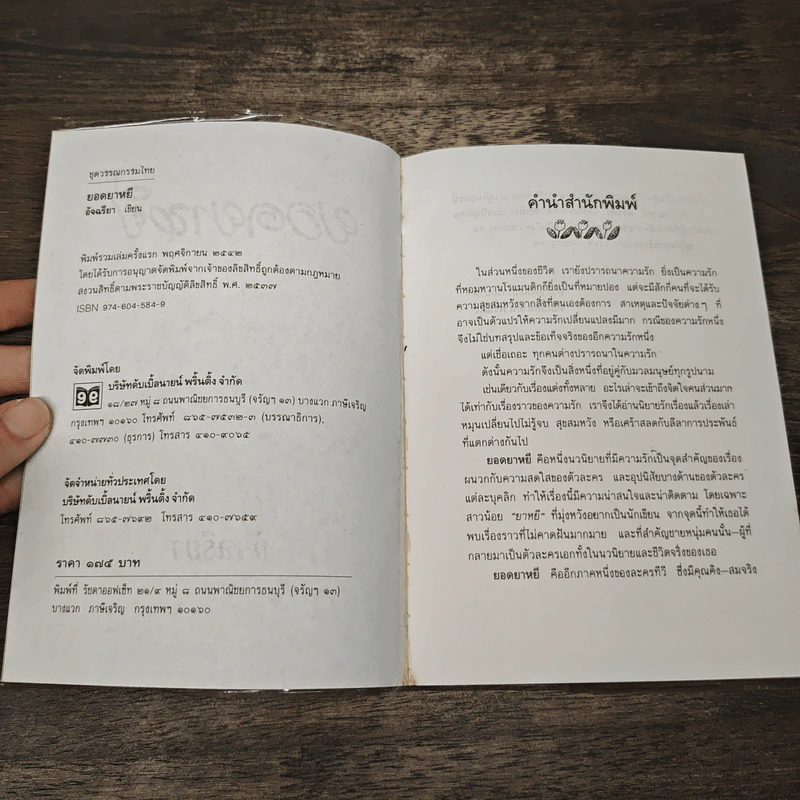 ชุดวรรณกรรมไทย
ยอดยาหยี
อัจฉรียา เขียน
พิมพ์รวมเล่มครั้งแรก พฤศจิกายน ๒๕๔๒
โดยได้รับการอนุญาตจัดพิมพ์จากเจ้าของลิขสิทธิ์ถูกต้องตามกฎหมาย
สงวนสิทธิ์ตามพระราชบัญญัติลิขสิทธิ์ พ.ศ. ๒๕๓๗
ISBN 974-604-584-9
จัดพิมพ์โดย
บริษัทดับเบิ้ลนายน์ พริ้นติ้ง จำกัด
๑๘/๒๗ หมู่ ๘ ถนนพาณิชยการธนบุรี (จรัญฯ ๑๓) บางแวก ภาษีเจริญ
กรุงเทพฯ ๑๐๑๖๐ โทรศัพท์ ๘๖๕-๗๕๓๒-๓ (บรรณาธิการ),
๔๑๐-๗๗๓๐ (ธุรการ) โทรสาร ๔๑๐-๙๐๖๕
จัดจำหน่ายทั่วประเทศโดย
บริษัทดับเบิ้ลนายน์ พริ้นติ้ง จำกัด
โทรศัพท์ ๘๖๕-๗๖๙๒ โทรสาร ๔๑๐-๗๖๕๙
ราคา ๑๗๕ บาท
พิมพ์ที่ รัชดาออฟเซ็ท ๒๑/๙ หมู่ ๘ ถนนพาณิชยการธนบุรี (จรัญฯ ๑๓)
บางแวก ภาษีเจริญ กรุงเทพฯ ๑๐๑๖๐
คำนำสำนักพิมพ์
ในส่วนหนึ่งของชีวิต เรายังปรารถนาความรัก ยิ่งเป็นความรัก
ที่หอมหวานโรแมนติกก็ยิ่งเป็นที่หมายปอง แต่จะมีสักกี่คนที่จะได้รับ
ความสุขสมหวังจากสิ่งที่ตนเองต้องการ สาเหตุและปัจจัยต่างๆ ที่
อาจเป็นตัวแปรให้ความรักเปลี่ยนแปลงมีมาก กรณีของความรักหนึ่ง
จึงไม่ใช่บทสรุปและข้อเท็จจริงของอีกความรักหนึ่ง
แต่เชื่อเถอะ ทุกคนต่างปรารถนาในความรัก
ดังนั้นความรักจึงเป็นสิ่งหนึ่งที่อยู่คู่กับมวลมนุษย์ทุกรูปนาม
เช่นเดียวกับเรื่องแต่งทั้งหลาย อะไรเล่าจะเข้าถึงจิตใจคนส่วนมาก
ได้เท่ากับเรื่องราวของความรัก เราจึงได้อ่านนิยายรักเรื่องแล้วเรื่องเล่า
หมุนเปลี่ยนไปไม่รู้จบ สุขสมหวัง หรือเศร้าสลดกับลีลาการประพันธ์
ที่แตกต่างกันไป
ยอดยาหยี คือหนึ่งนวนิยายที่มีความรักเป็นจุดสำคัญของเรื่อง
ผนวกกับความสดใสของตัวละคร และอุปนิสัยบางด้านของตัวละคร
แต่ละบุคลิก ทำให้เรื่องนี้มีความน่าสนใจและน่าติดตาม โดยเฉพาะ
สาวน้อย "ยาหยี" ที่มุ่งหวังอยากเป็นนักเขียน จากจุดนี้ทำให้เธอได้
พบเรื่องราวที่ไม่คาดฝันมากมาย และที่สำคัญชายหนุ่มคนนั้น—ผู้ที่
กลายมาเป็นตัวละครเอกทั้งในนวนิยายและชีวิตจริงของเธอ
ยอดยาหยี คืออีกภาคหนึ่งของละครทีวี ซึ่งมีคุณคิง—สมจริง